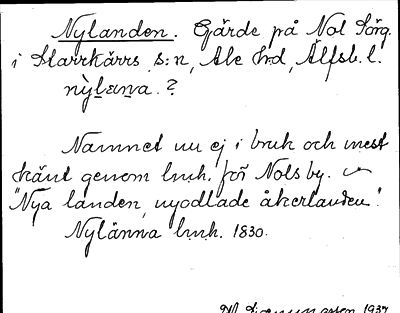 Nylanden. Gärde på Nol Sörg.
i Starrkärrs s:n, Ale hd, Älfsb. l.
nỳlæna. ?
Namnet nu ej i bruk och mest
känt genom lmh. för Nols by.
"Nya landen, nyodlade åkerlanden".
Nylänna lmh. 1830.
1937